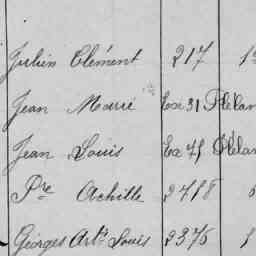 Julien Clément 217
Jean Marie Ex 31
Jean Louis Ex 45
Pre Achille 2418
Georges Art. Louis 2376